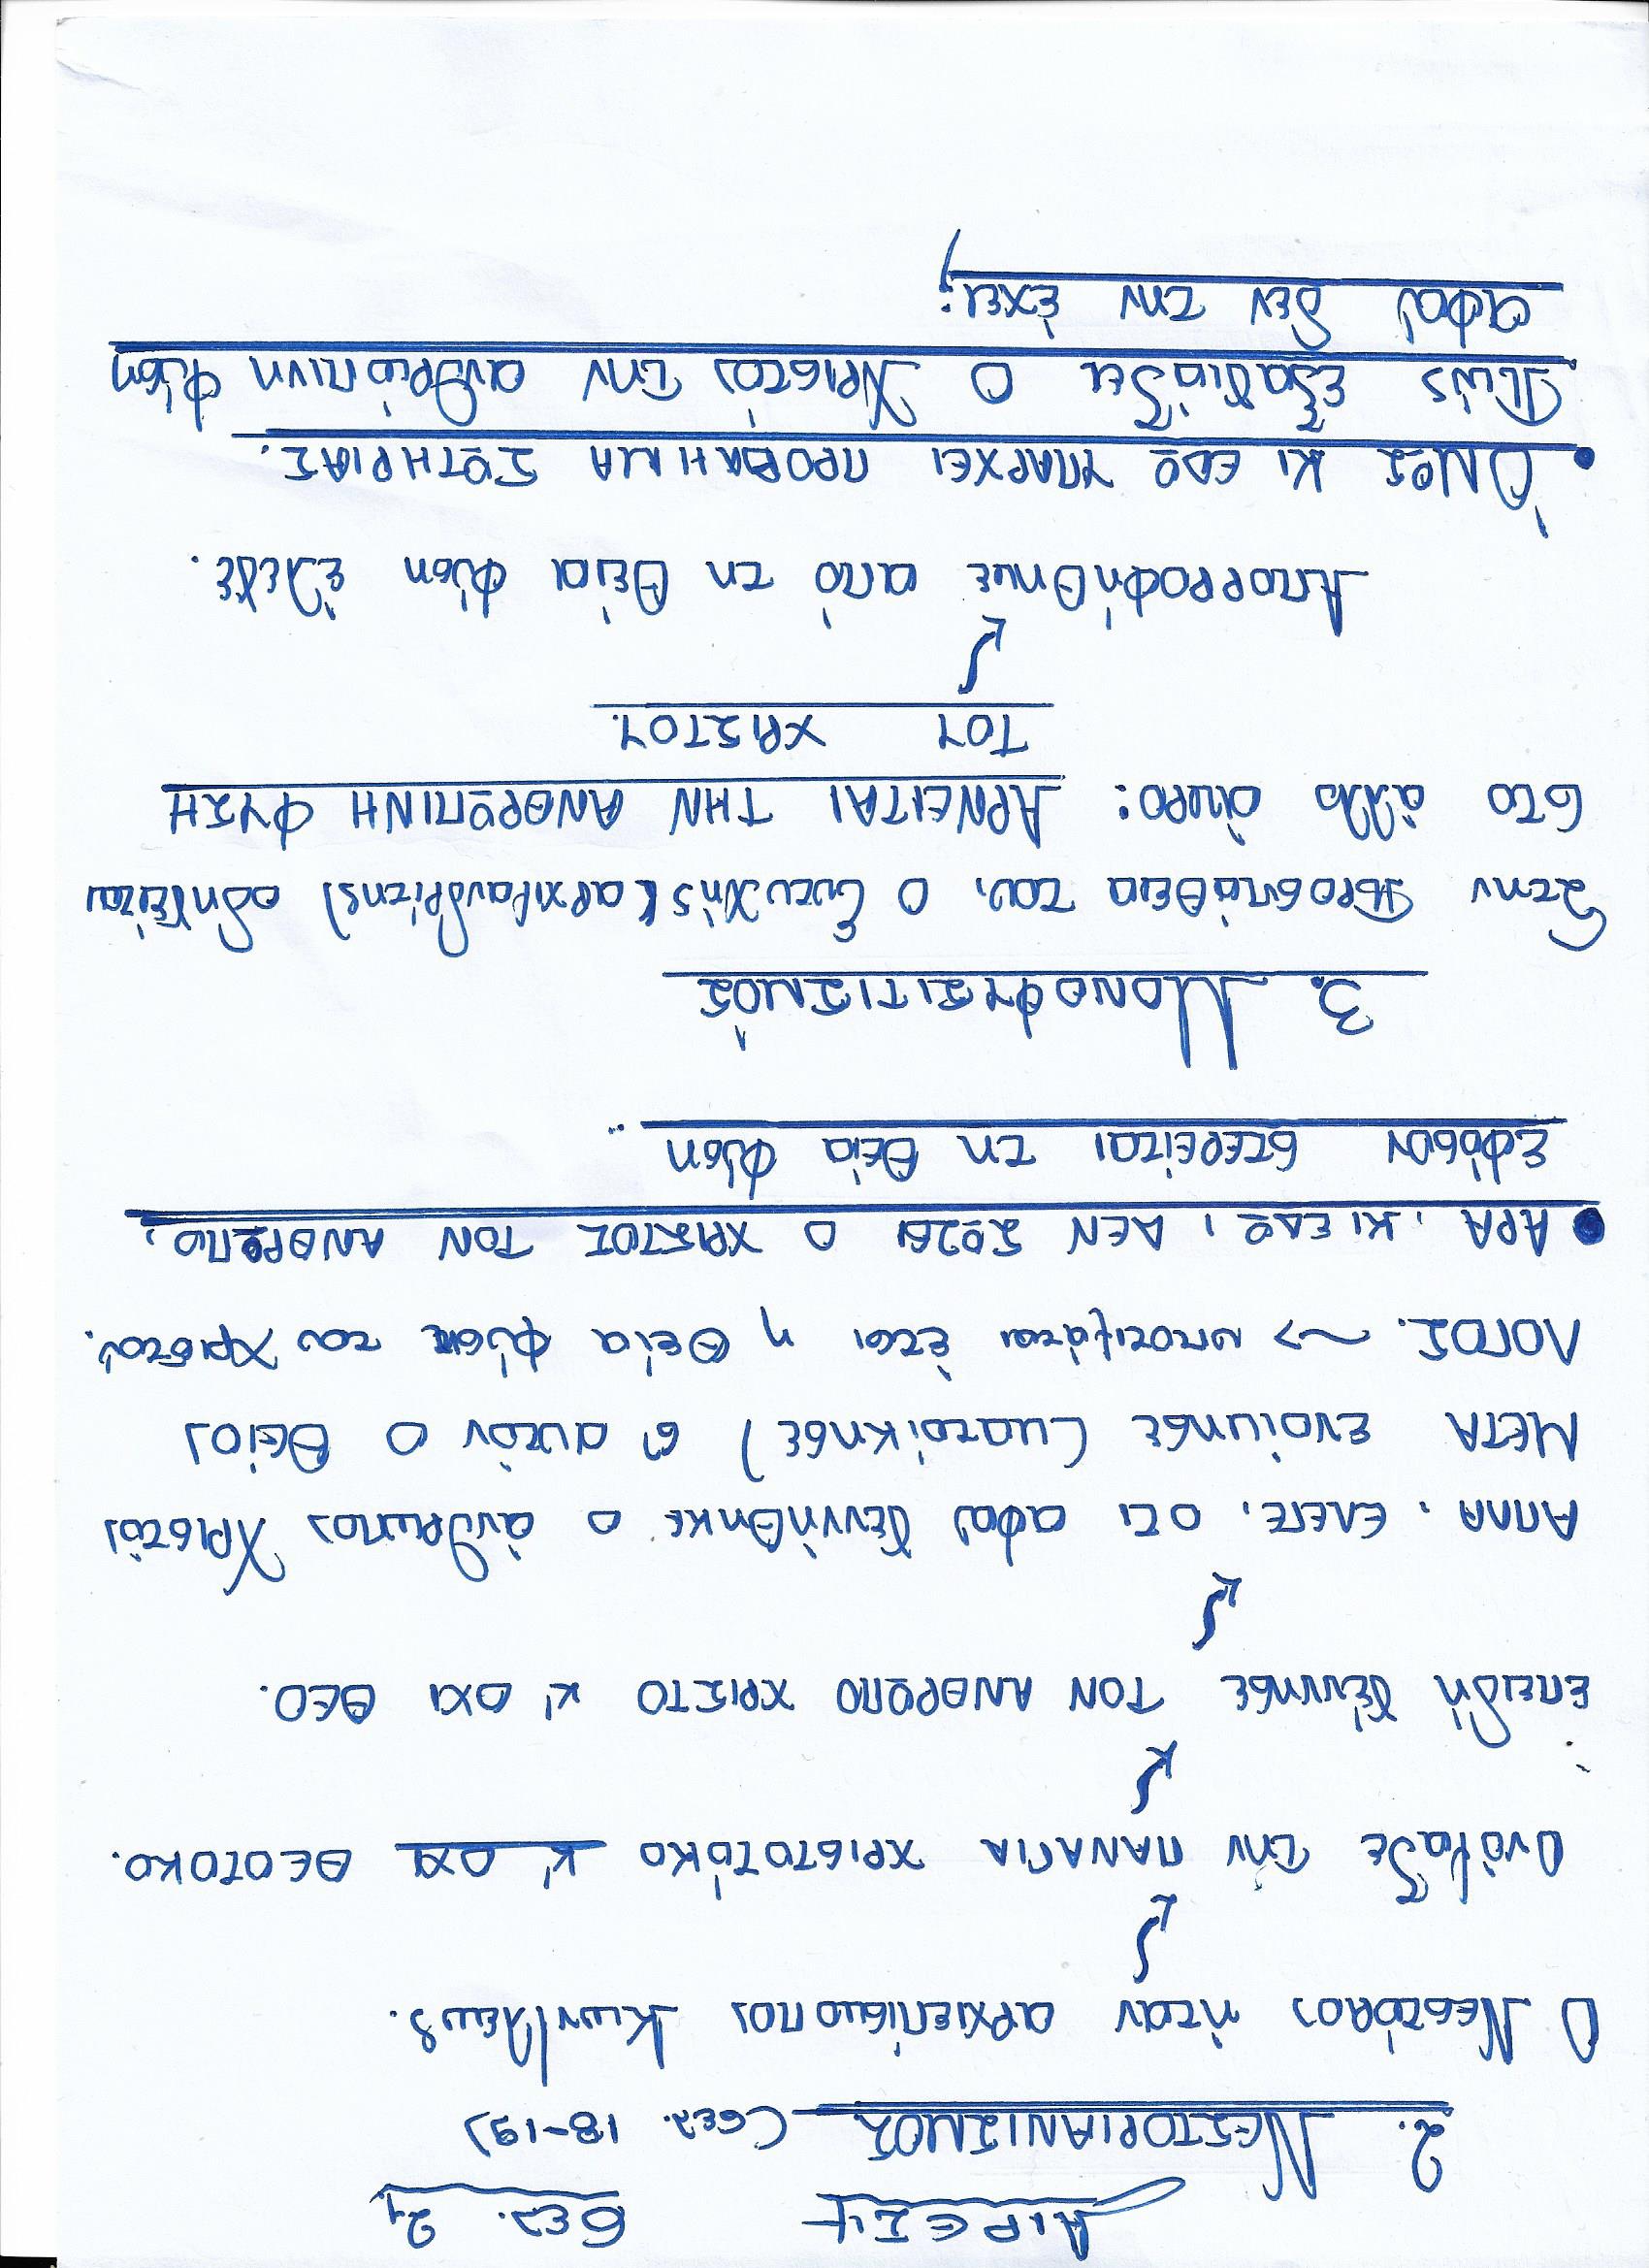 ΑΙΡΕΣΕΙΣ σελ. 21
2. ΝΕΣΤΟΡΙΑΝΙΣΜΟΣ (σελ. 18-19)
Ο Νεστόριος ήταν αρχιεπίσκοπος Κων/λεως.
Ονόμαζε την ΠΑΝΑΓΙΑ ΧΡΙΣΤΟΤόΚΟ κ' οχι ΘΕΟΤΟΚΟ.
επειδή γέννησε ΤΟΝ ΑΝΘΡΩΠΟ ΧΡΙΣΤΟ κ' ΟΧΙ ΘΕΟ.
ΑΠΛΑ, ΕΛΕΓΕ, ΟΤΙ αφού γεννήθηκε ο άνθρωπος Χριστός
ΜΕΤΑ ενοίκησε (κατοίκησε) σ' αυτόν ο Θείος
ΛΟΓΟΣ. ~> υποτιμάται έτσι η Θεία φύση του Χριστού.
• ΑΡΑ, ΚΙ ΕΔΩ, ΔΕΝ ΣΩΖΕΙ Ο ΧΡΙΣΤΟΣ ΤΟΝ ΑΝΘΡΩΠΟ,
εφόσον στερείται τη Θεία φύση..
3. ΜΟΝΟΦΥΣΙΤΙΣΜΌΣ
Στην προσπάθεια του, ο Ευτυχής (αρχιμανδρίτης) οδηγείται
στο άλλο άκρο: ΑΡΝΕΙΤΑΙ ΤΗΝ ΑΝΘΡΩΠΙΝΗ ΦΥΣΗ
ΤΟΥ ΧΡΙΣΤΟΥ.
Απορροφήθηκε από τη Θεία φύση έλεγε.
• ΌΜΩΣ ΚΙ ΕΔΩ ΥΠΑΡΧΕΙ ΠΡΟΒΛΗΜΑ ΣΩΤΗΡΙΑΣ.
Πώς εξαγιάζει ο Χριστός την ανθρώπινη φύση
αφού δεν την έχει;